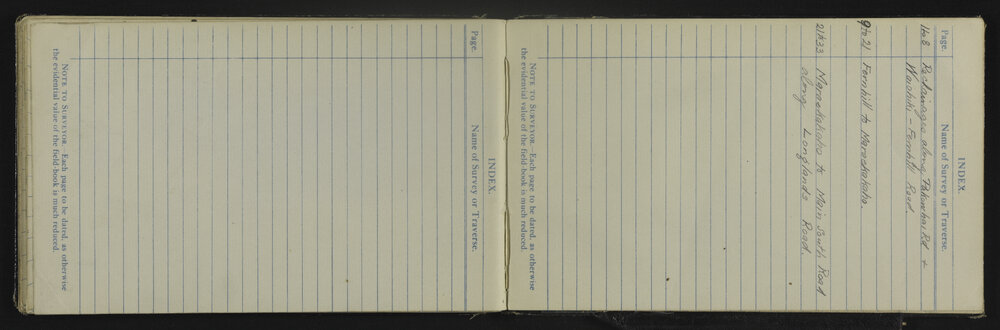 INDEX.
Page. Name of Survey or Traverse.
1 to 8 Rechainages along Pakowhai Rd +
Waiohiki - Fernhill Road
9 to 21 Fernhill to Maraekakaho.
21 to 33 Maraekakaho to Main South Road
along Longlands Road.
NOTE TO SURVEYOR.—Each page to be dated, as otherwise
the evidential value of the field-book is much reduced.
INDEX.
Page. Name of Survey or Traverse.
NOTE TO SURVEYOR.—Each page to be dated, as otherwise
the evidential value of the field-book is much reduced.